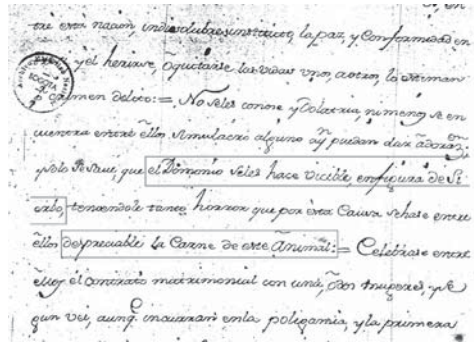 tre esta nacion, indisolublemente, la paz, y Conformidad en
y el herirse, o quitarse las vidas unos, a otros, lo estiman
Crimen delito: = No seles conoce ydolatria, ni menos se en
cuentra entre ellos simulacro alguno aqn puedan dar adoraon;
y solo se save, que el Demonio seles hace vicible, enfigura de Si
erbo, teniendole tanto horror que por esta Causa sehase entre
ellos despreciable la Carne de este Animal: = Celebrase entre
ellos el Contrato matrimonial con una, o dos mugeres, y se
gun vei, aunq. incurran enla poligamia, y la primera